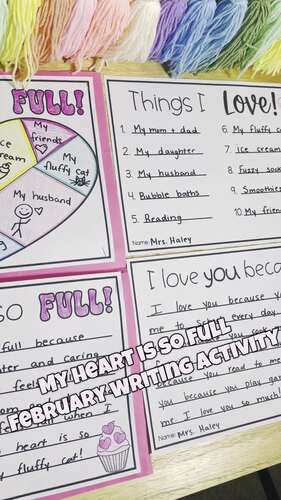 FULL!
My friends
ice cream
My fluffy cat
My husband
Things I Love!
1. My mom + dad
2. My daughter
3. My husband
4. Bubble baths
5. Reading
6. My fluffy c
7. Ice cream
8. Fuzzy soc
9. Smoothies
10. My frien
Name: Mrs. Haley
so FULL!
full because
ter and caring
feel
when I
heart is so
fluffy cat!
I love you beca
I love you because y
me to School every day
you because you cook
because you read to me
you because you play ga
me I love you so much!
Name: Mrs. Haley
My Heart is so Full
February Writing Activity